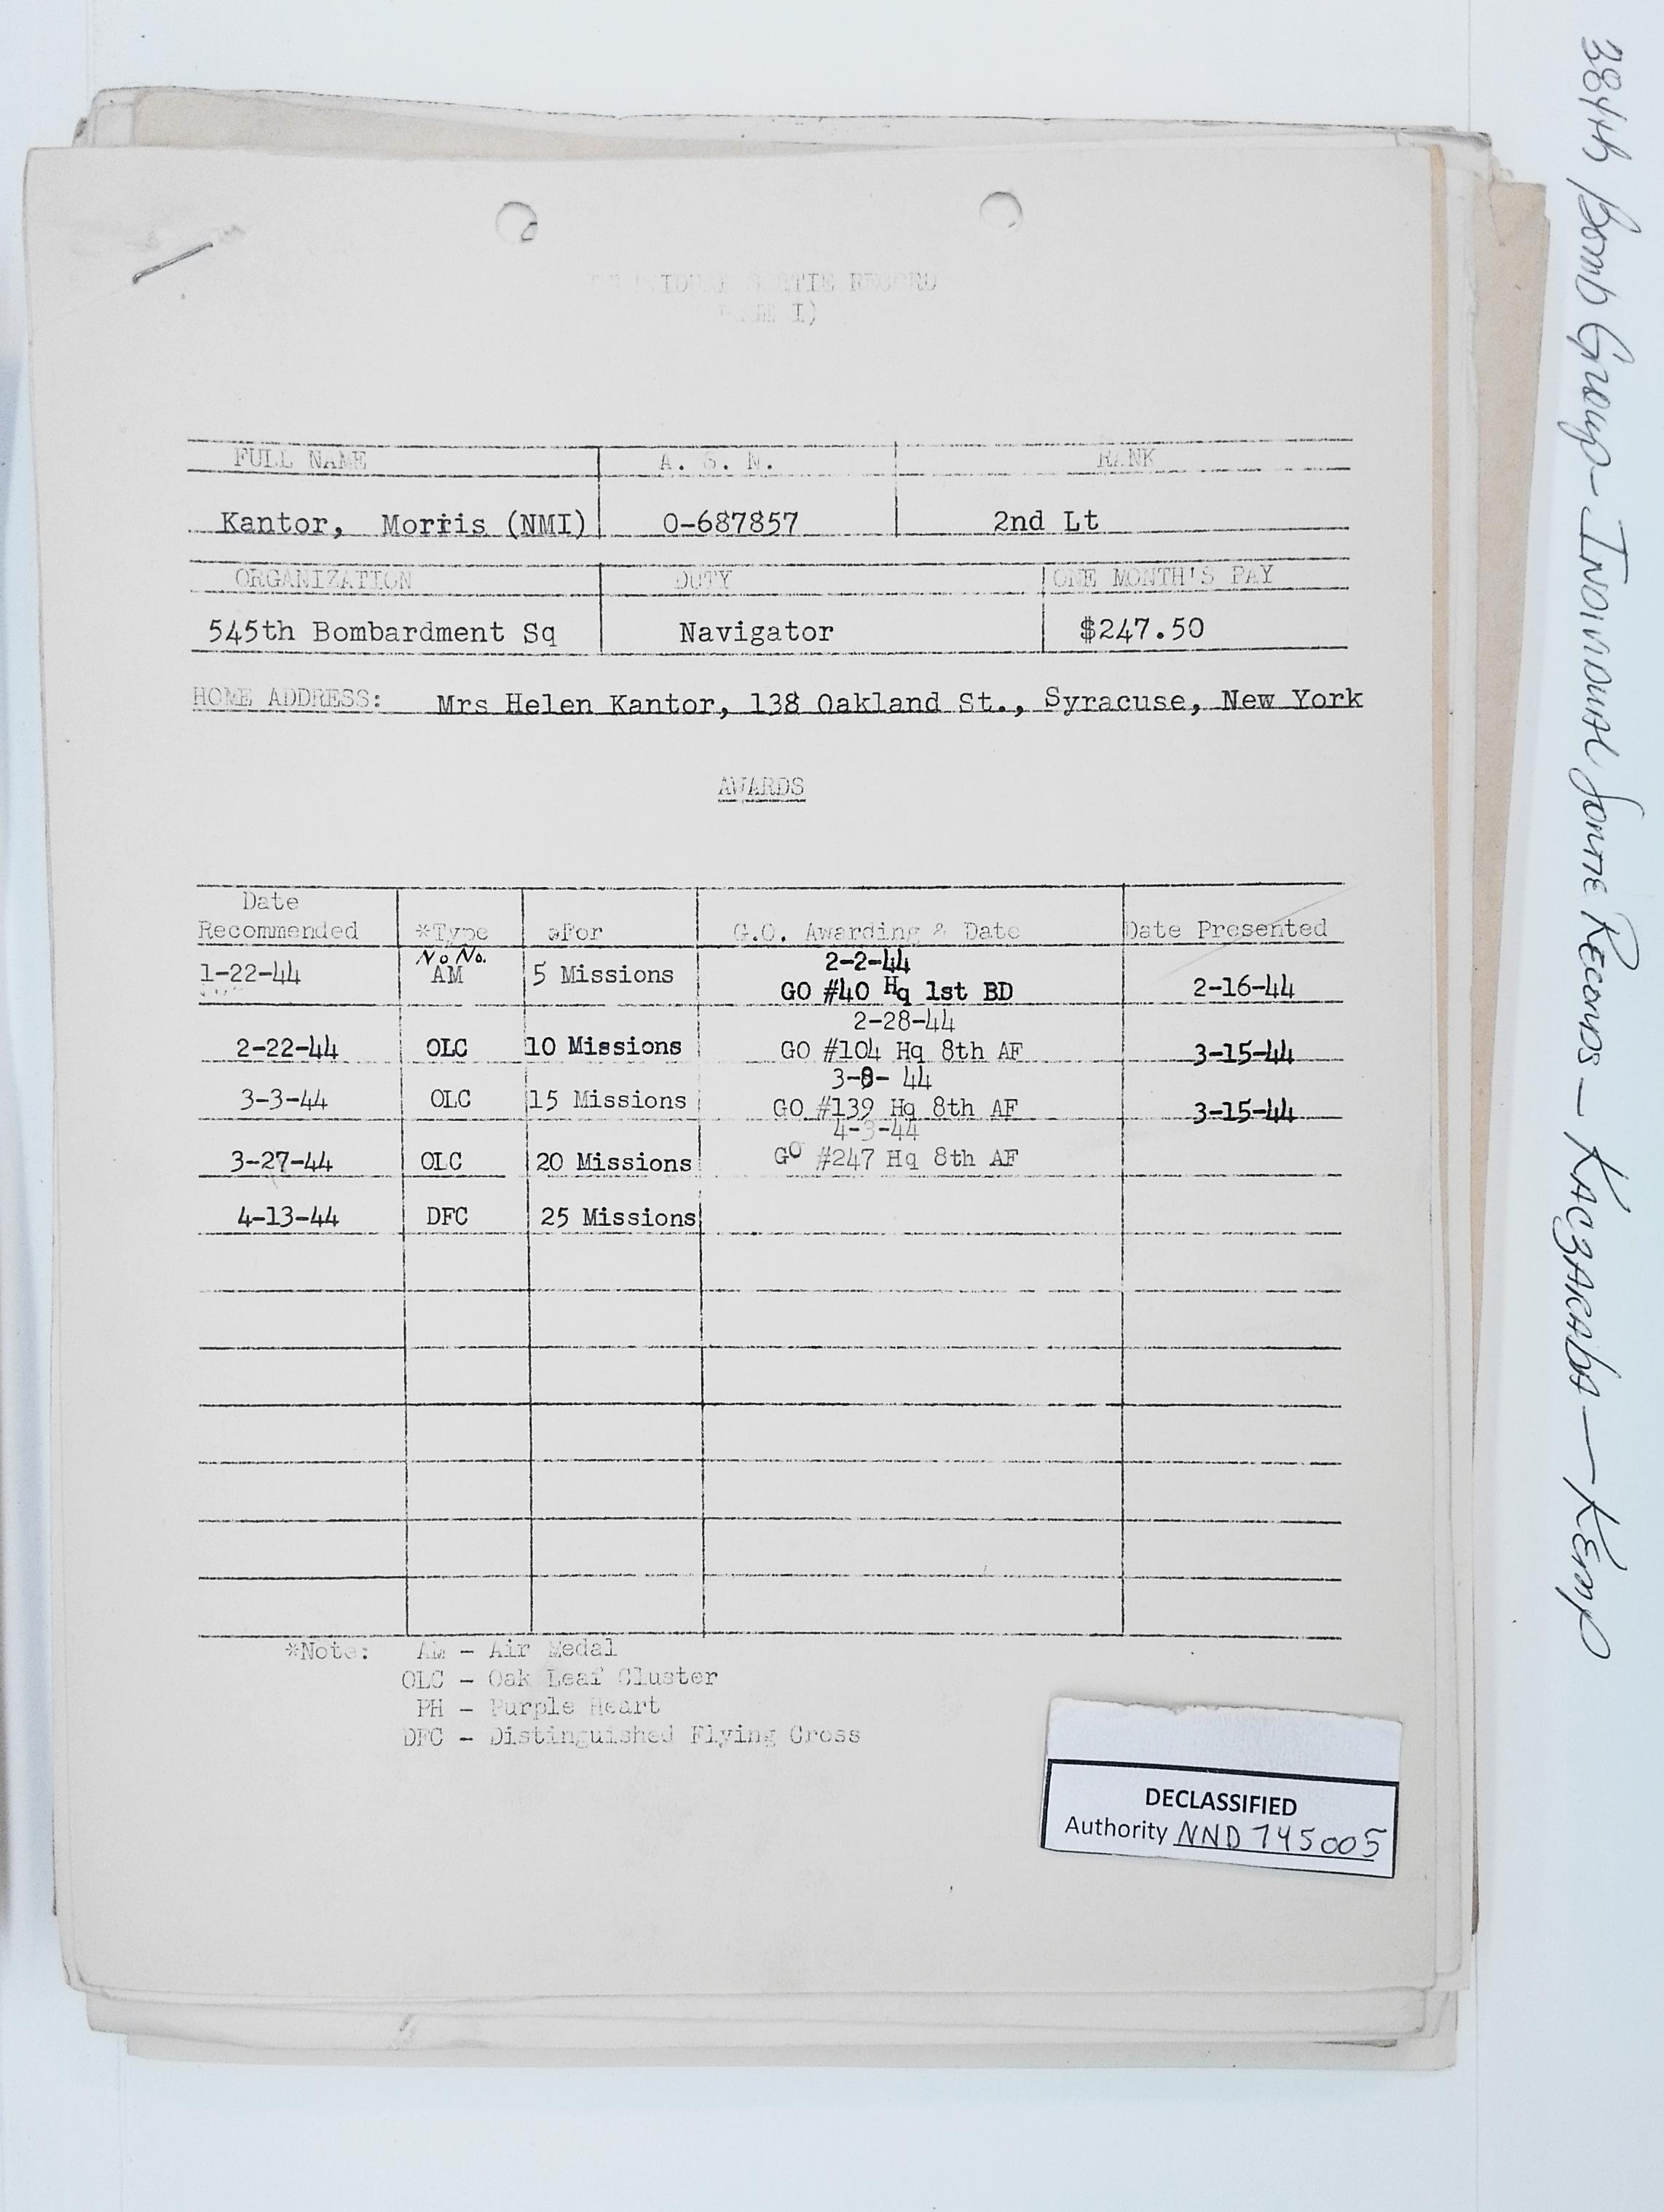 SORTIE RECORD
I)
FULL NAME A. S. N. RANK
Kantor, Morris (NMI) O-687857 2nd Lt
ORGANIZATION DUTY ONE MONTH'S PAY
545th Bombardment Sq Navigator $247.50
HOME ADDRESS: Mrs Helen Kantor, 138 Oakland St., Syracuse, New York
AWARDS
Date
Recommended *Type *For G.O. Awarding & Date Date Presented
No No. 2-2-44
1-22-44 AM 5 Missions GO #40 Hq 1st BD 2-16-44
2-28-44
2-22-44 OLC 10 Missions GO #104 Hq 8th AF 3-15-44
3-8- 44
3-3-44 OLC 15 Missions GO #139 Hq 8th AF 3-15-44
4-3-44
3-27-44 OLC 20 Missions GO #247 Hq 8th AF
4-13-44 DFC 25 Missions
*Note: AM - Air Medal
OLC - Oak Leaf Cluster
PH - Purple Heart
DFC - Distinguished Flying Cross
DECLASSIFIED
Authority NND 745005
384th Bomb Group - Individual Sortie Records - Kaczaraba - Kemp